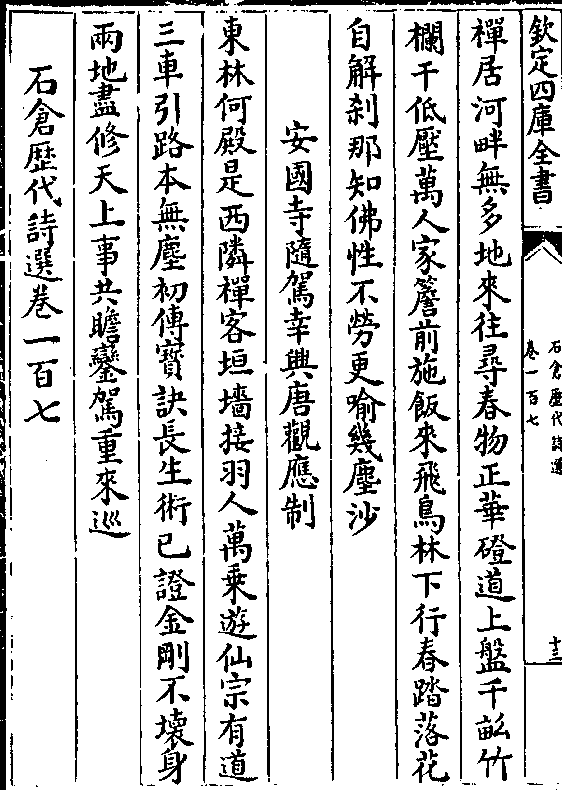 欽定四庫全書
石倉歷代詩選
卷一百七
十三
禪居河畔無多地來往尋春物正華磴道上盤千畝竹
欄干低壓萬人家簷前施飯來飛鳥林下行春踏落花
自解刹那知佛性不勞更喻幾塵沙
安國寺隨駕幸興唐觀應制
東林何殿是西隣禪客垣墻接羽人萬乗遊仙宗有道
三車引路本無塵初傳寶訣長生術已證金剛不壞身
兩地盡修天上事共瞻鑾駕重來巡
石倉歷代詩選卷一百七